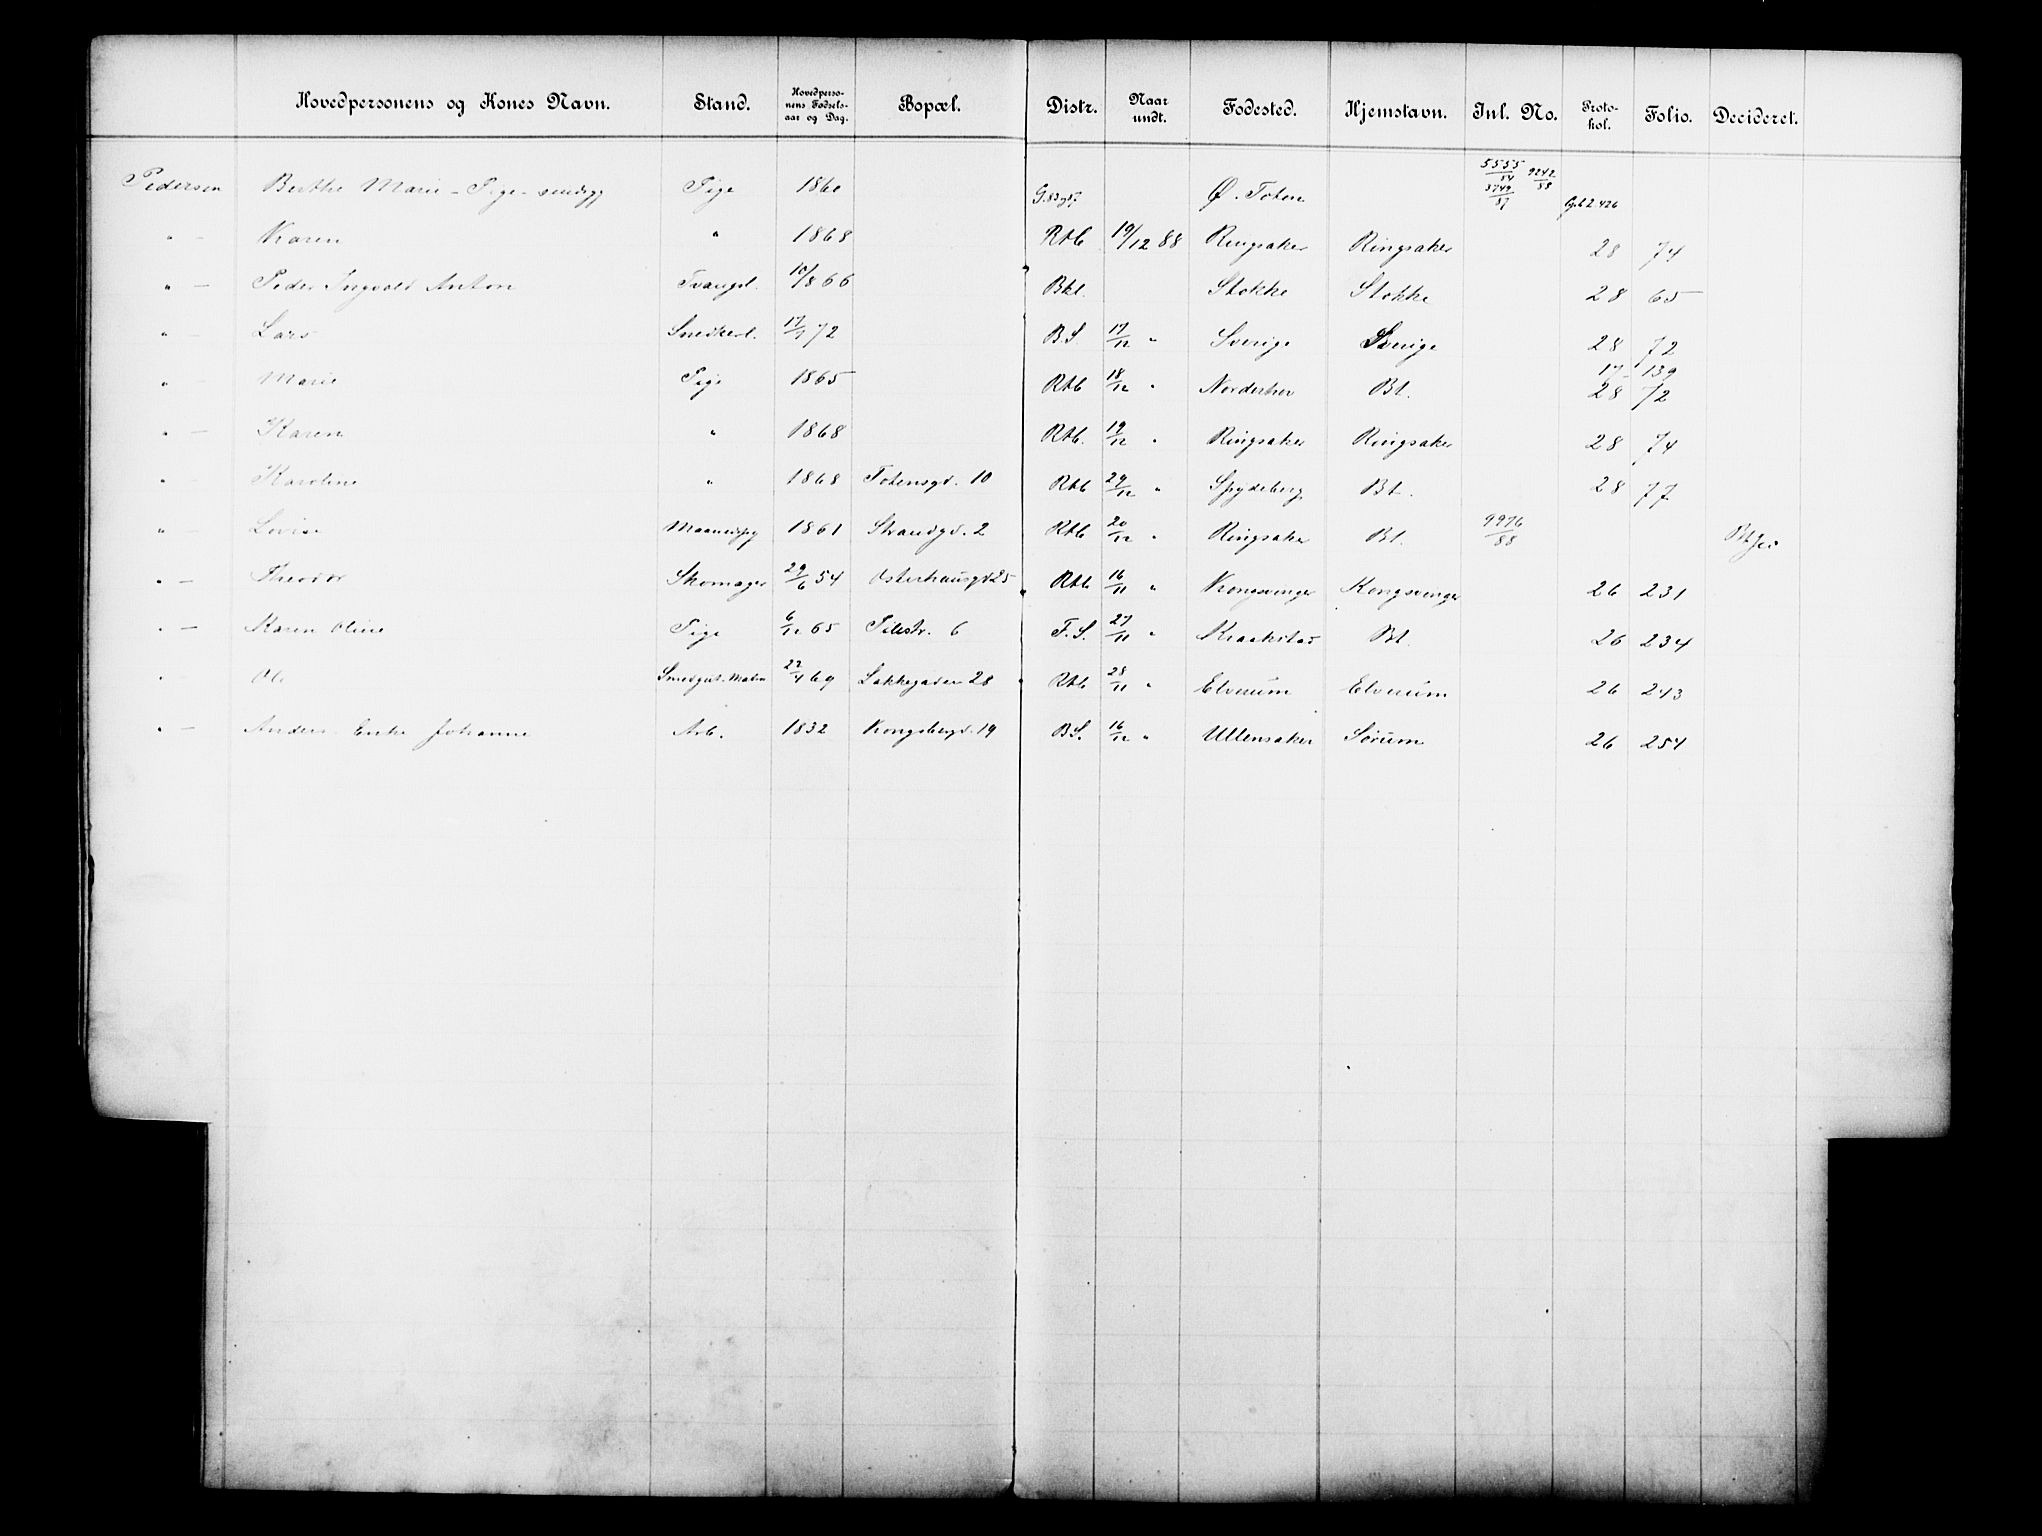 Hovedpersonens og Kones Navn. Stand. Hovedperso-nens Fødsels-aar og Dag. Bopæl. Distr. Naar undt. Fødested. Hjemstavn. Inl. No. Proto-kol. Folio. Decideret.
Pedersen Berthe Marie - Pige - Pige 1860 Ø. Toten 5555/84 9242/88 3749/87
" — Karen " 1868 Rtb 19/12 88 Ringsaker Ringsaker 28 74
" — Peder Ingvold Anton Tvangsl. 10/8 66 Bkl. Stokke Stokke 28 65
" — Lars Snedkerl. 17/9 72 B.S. 17/12 " Sverige Sverige 28 72
" — Marie Pige 1865 Rtb 18/12 " Nordreher Bt. 17 - 139 28 72
" — Karen " 1868 Rtb. 19/12 " Ringsaker Ringsaker 28 74
" — Karoline " 1868 Totensgd. 10 Rtb 29/12 " Spydeberg Bt. 28 77
" — Lovise 1861 Strandgd. 2 Rtb 20/12 " Ringsaker Bt. 9976/88
" — Theodor Skomager 29/6 54 Osterhausgd 25 Rtb 16/11 " Kongsvinger Kongsvinger 26 231
" — Karen Oline Pige 6/12 65 Pilestr. 6 F.S. 27/11 " Kraakstad Bt. 26 234
" — Ole 22/4 69 Lakkegaden 28 Rtb 28/11 " Elverum Elverum 26 243
" — Anders Enke Johanne Arb. 1832 Kongsbergd. 19 B.S. 16/12 " Ullensaker Sørum 26 254